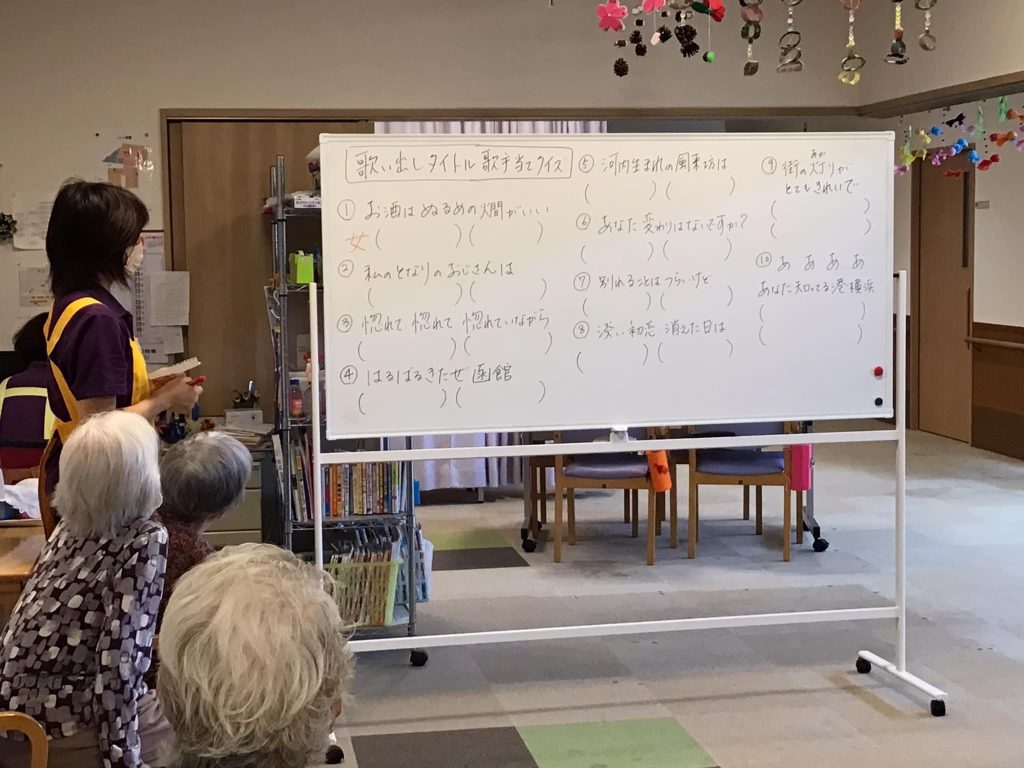 歌い出しタイトル歌手当てクイズ
① お酒はぬるめの燗がいい
女 (　　　) (　　　)
② 私のとなりのおじさんは
(　　　) (　　　)
③ 惚れて 惚れて 惚れていながら
(　　　) (　　　)
④ はるばるきたぜ 函館
(　　　) (　　　)
⑤ 河内生まれの風来坊は
(　　　) (　　　)
⑥ あなた変わりはないですか?
(　　　) (　　　)
⑦ 別れることはつらいけど
(　　　) (　　　)
⑧ 淡い初恋 消えた日は
(　　　) (　　　)
あか
⑨ 街の灯りが
とてもきれいで
(　　　)
(　　　)
⑩ あ あ あ あ
あなた知ってる港横浜
(　　　)
(　　　)